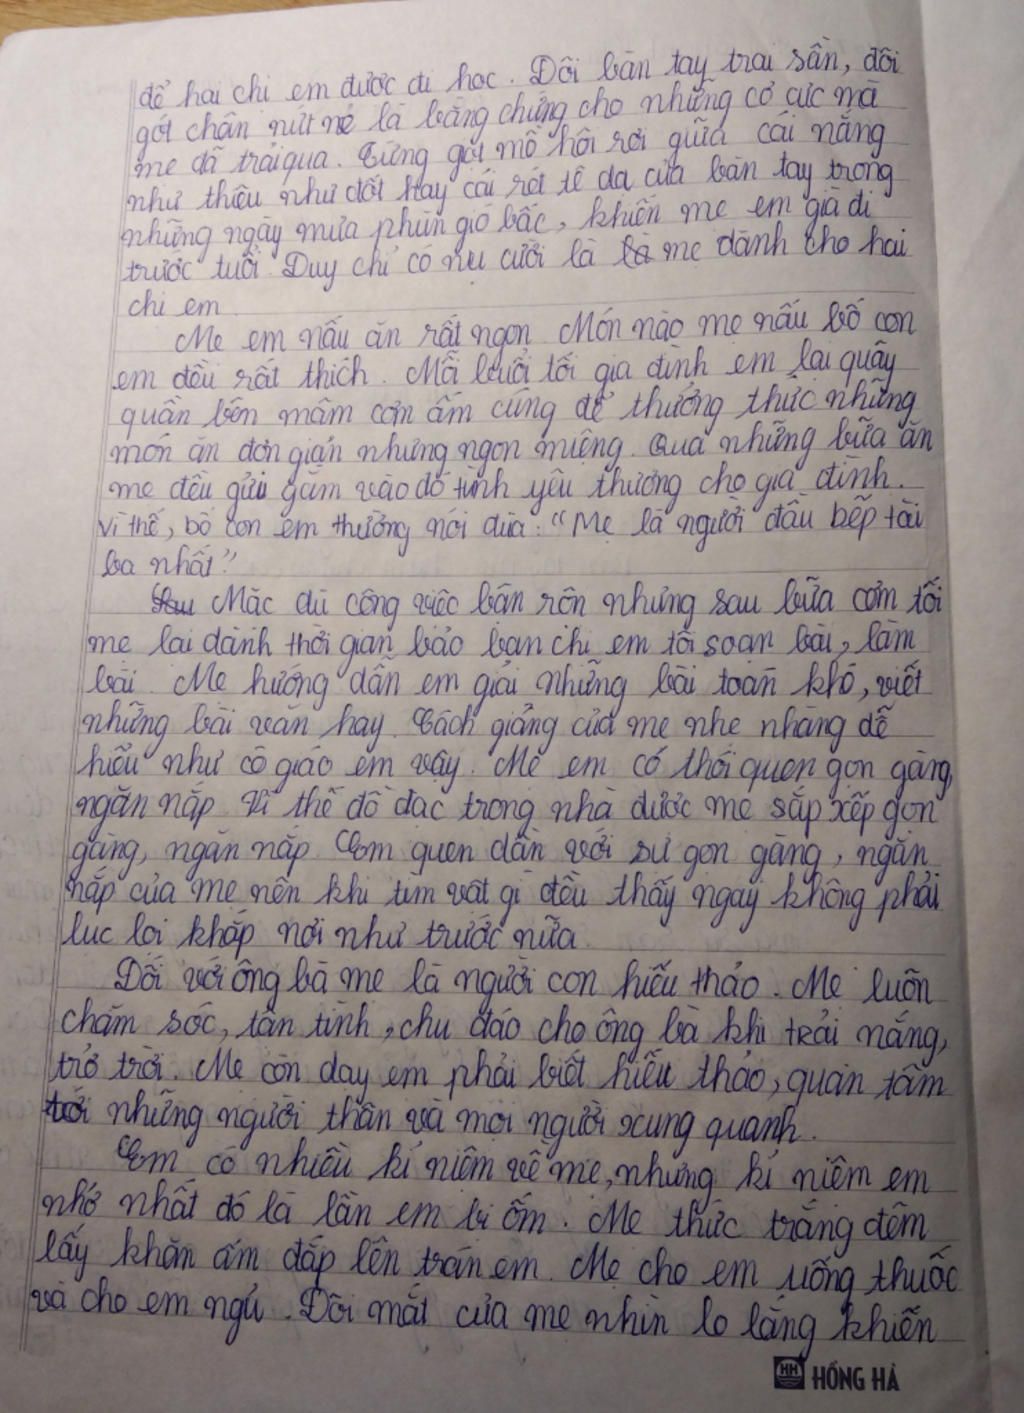 để hai chị em được đi học. Đôi bàn tay trai sần, đôi
gót chân nứt nẻ là bằng chứng cho những cơ cực mà
mẹ đã trải qua. Từng giọt mồ hôi rơi giữa cái nắng
như thiêu như đốt hay cái rét tê da của bàn tay trong
những ngày mưa phùn gió bấc, khiến mẹ em già đi
trước tuổi. Duy chỉ có nụ cười là là mẹ dành cho hai
chị em.
Mẹ em nấu ăn rất ngon. Món nào mẹ nấu bố con
em đều rất thích. Mỗi buổi tối gia đình em lại quây
quần bên mâm cơm ấm cúng để thưởng thức những
món ăn đơn giản nhưng ngon miệng. Qua những bữa ăn
mẹ đều gửi gắm vào đó tình yêu thương cho gia đình.
Vì thế, bố con em thường nói đùa: "Mẹ là người đầu bếp tài
ba nhất"
Mặc dù công việc bận rộn nhưng sau bữa cơm tối
mẹ lại dành thời gian bảo ban chị em tôi soạn bài, làm
bài. Mẹ hướng dẫn em giải những bài toán khó, viết
những bài văn hay. Cách giảng của mẹ nhẹ nhàng dễ
hiểu như cô giáo em vậy. Mẹ em có thói quen gọn gàng,
ngăn nắp. Vì thế đồ đạc trong nhà được mẹ sắp xếp gọn
gàng, ngăn nắp. Em quen dần với sự gọn gàng, ngăn
nắp của mẹ nên khi tìm vật gì đều thấy ngay không phải
lục lọi khắp nơi như trước nữa.
Đối với ông bà mẹ là người con hiếu thảo. Mẹ luôn
chăm sóc, tận tình, chu đáo cho ông bà khi trải nắng,
trở trời. Mẹ còn dạy em phải biết hiếu thảo, quan tâm
tới những người thân và mọi người xung quanh.
Em có nhiều kỉ niệm về mẹ, nhưng kỉ niệm em
nhớ nhất đó là lần em bị ốm. Mẹ thức trắng đêm
lấy khăn ấm đắp lên trán em. Mẹ cho em uống thuốc
và cho em ngủ. Đôi mắt của mẹ nhìn lo lắng khiến
HH HỒNG HÀ